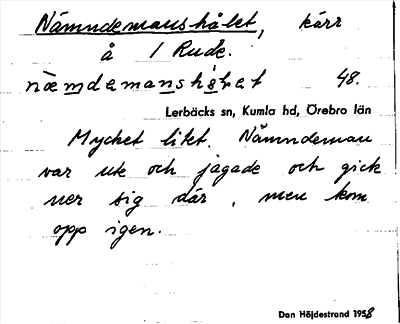 Nämndemanshålet, kärr
å 1 Rude.
næmdemanshǫlet 48.
Lerbäcks sn, Kumla hd, Örebro län
Mycket litet. Nämndeman
var ute och jagade och gick
ner sig där, men kom
opp igen.
Dan Höjdestrand 1958